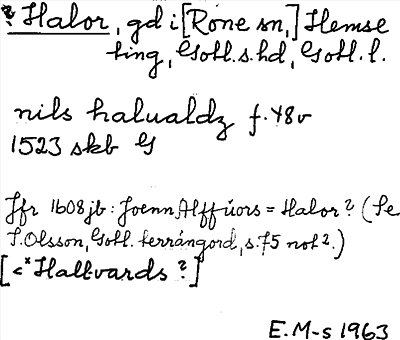 ? Halor, gd i [Rone sn,] Hemse
ting, Gotl. s. hd, Gotl. l.
nils halualdz f. 48v
1523 skb G
Jfr 1608 jb: Joenn Alffüors = Halor? (Se
I. Olsson, Gotl. terrängord, s. 75 not 2.)
[<*Hallvards ?]
E. M-s 1963